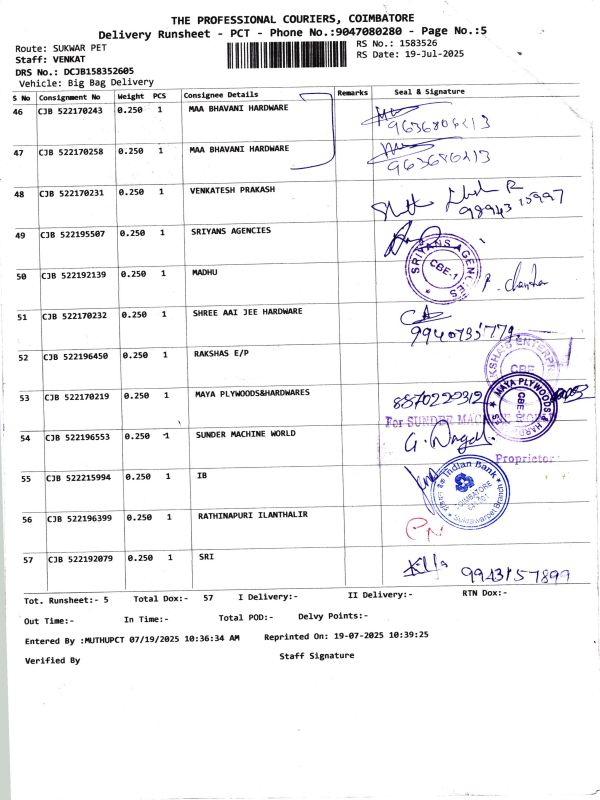 THE PROFESSIONAL COURIERS, COIMBATORE
Delivery Runsheet - PCT - Phone No.:9047080280 - Page No.:5
Route: SUKWAR PET
RS No.: 1583526
Staff: VENKAT
RS Date: 19-Jul-2025
DRS No.: DCJB158352605
Vehicle: Big Bag Delivery
S No Consignment No Weight PCS Consignee Details Remarks Seal & Signature
46 CJB 522170243 0.250 1 MAA BHAVANI HARDWARE
47 CJB 522170258 0.250 1 MAA BHAVANI HARDWARE
48 CJB 522170231 0.250 1 VENKATESH PRAKASH
49 CJB 522195507 0.250 1 SRIYANS AGENCIES
SRIYANS AGENCIES
CBE-1
50 CJB 522192139 0.250 1 MADHU
51 CJB 522170232 0.250 1 SHREE AAI JEE HARDWARE
52 CJB 522196450 0.250 1 RAKSHAS E/P
CBE
53 CJB 522170219 0.250 1 MAYA PLYWOODS&HARDWARES 8870229312
MAYA PLYWOODS & HARDWARES
CBE
For SUNDER MACHINE WORLD
54 CJB 522196553 1 0.250 1 SUNDER MACHINE WORLD
Proprietor
55 CJB 522215994 0.250 1 IB
Indian Bank
COIMBATORE
Sukrawarpet Branch
56 CJB 522196399 0.250 1 RATHINAPURI ILANTHALIR
57 CJB 522192079 0.250 1 SRI 9943157899
Tot. Runsheet:- 5 Total Dox:- 57 I Delivery:- II Delivery:- RTN Dox:-
Out Time:- In Time:- Total POD:- Delvy Points:-
Entered By :MUTHUPCT 07/19/2025 10:36:34 AM Reprinted On: 19-07-2025 10:39:25
Verified By Staff Signature